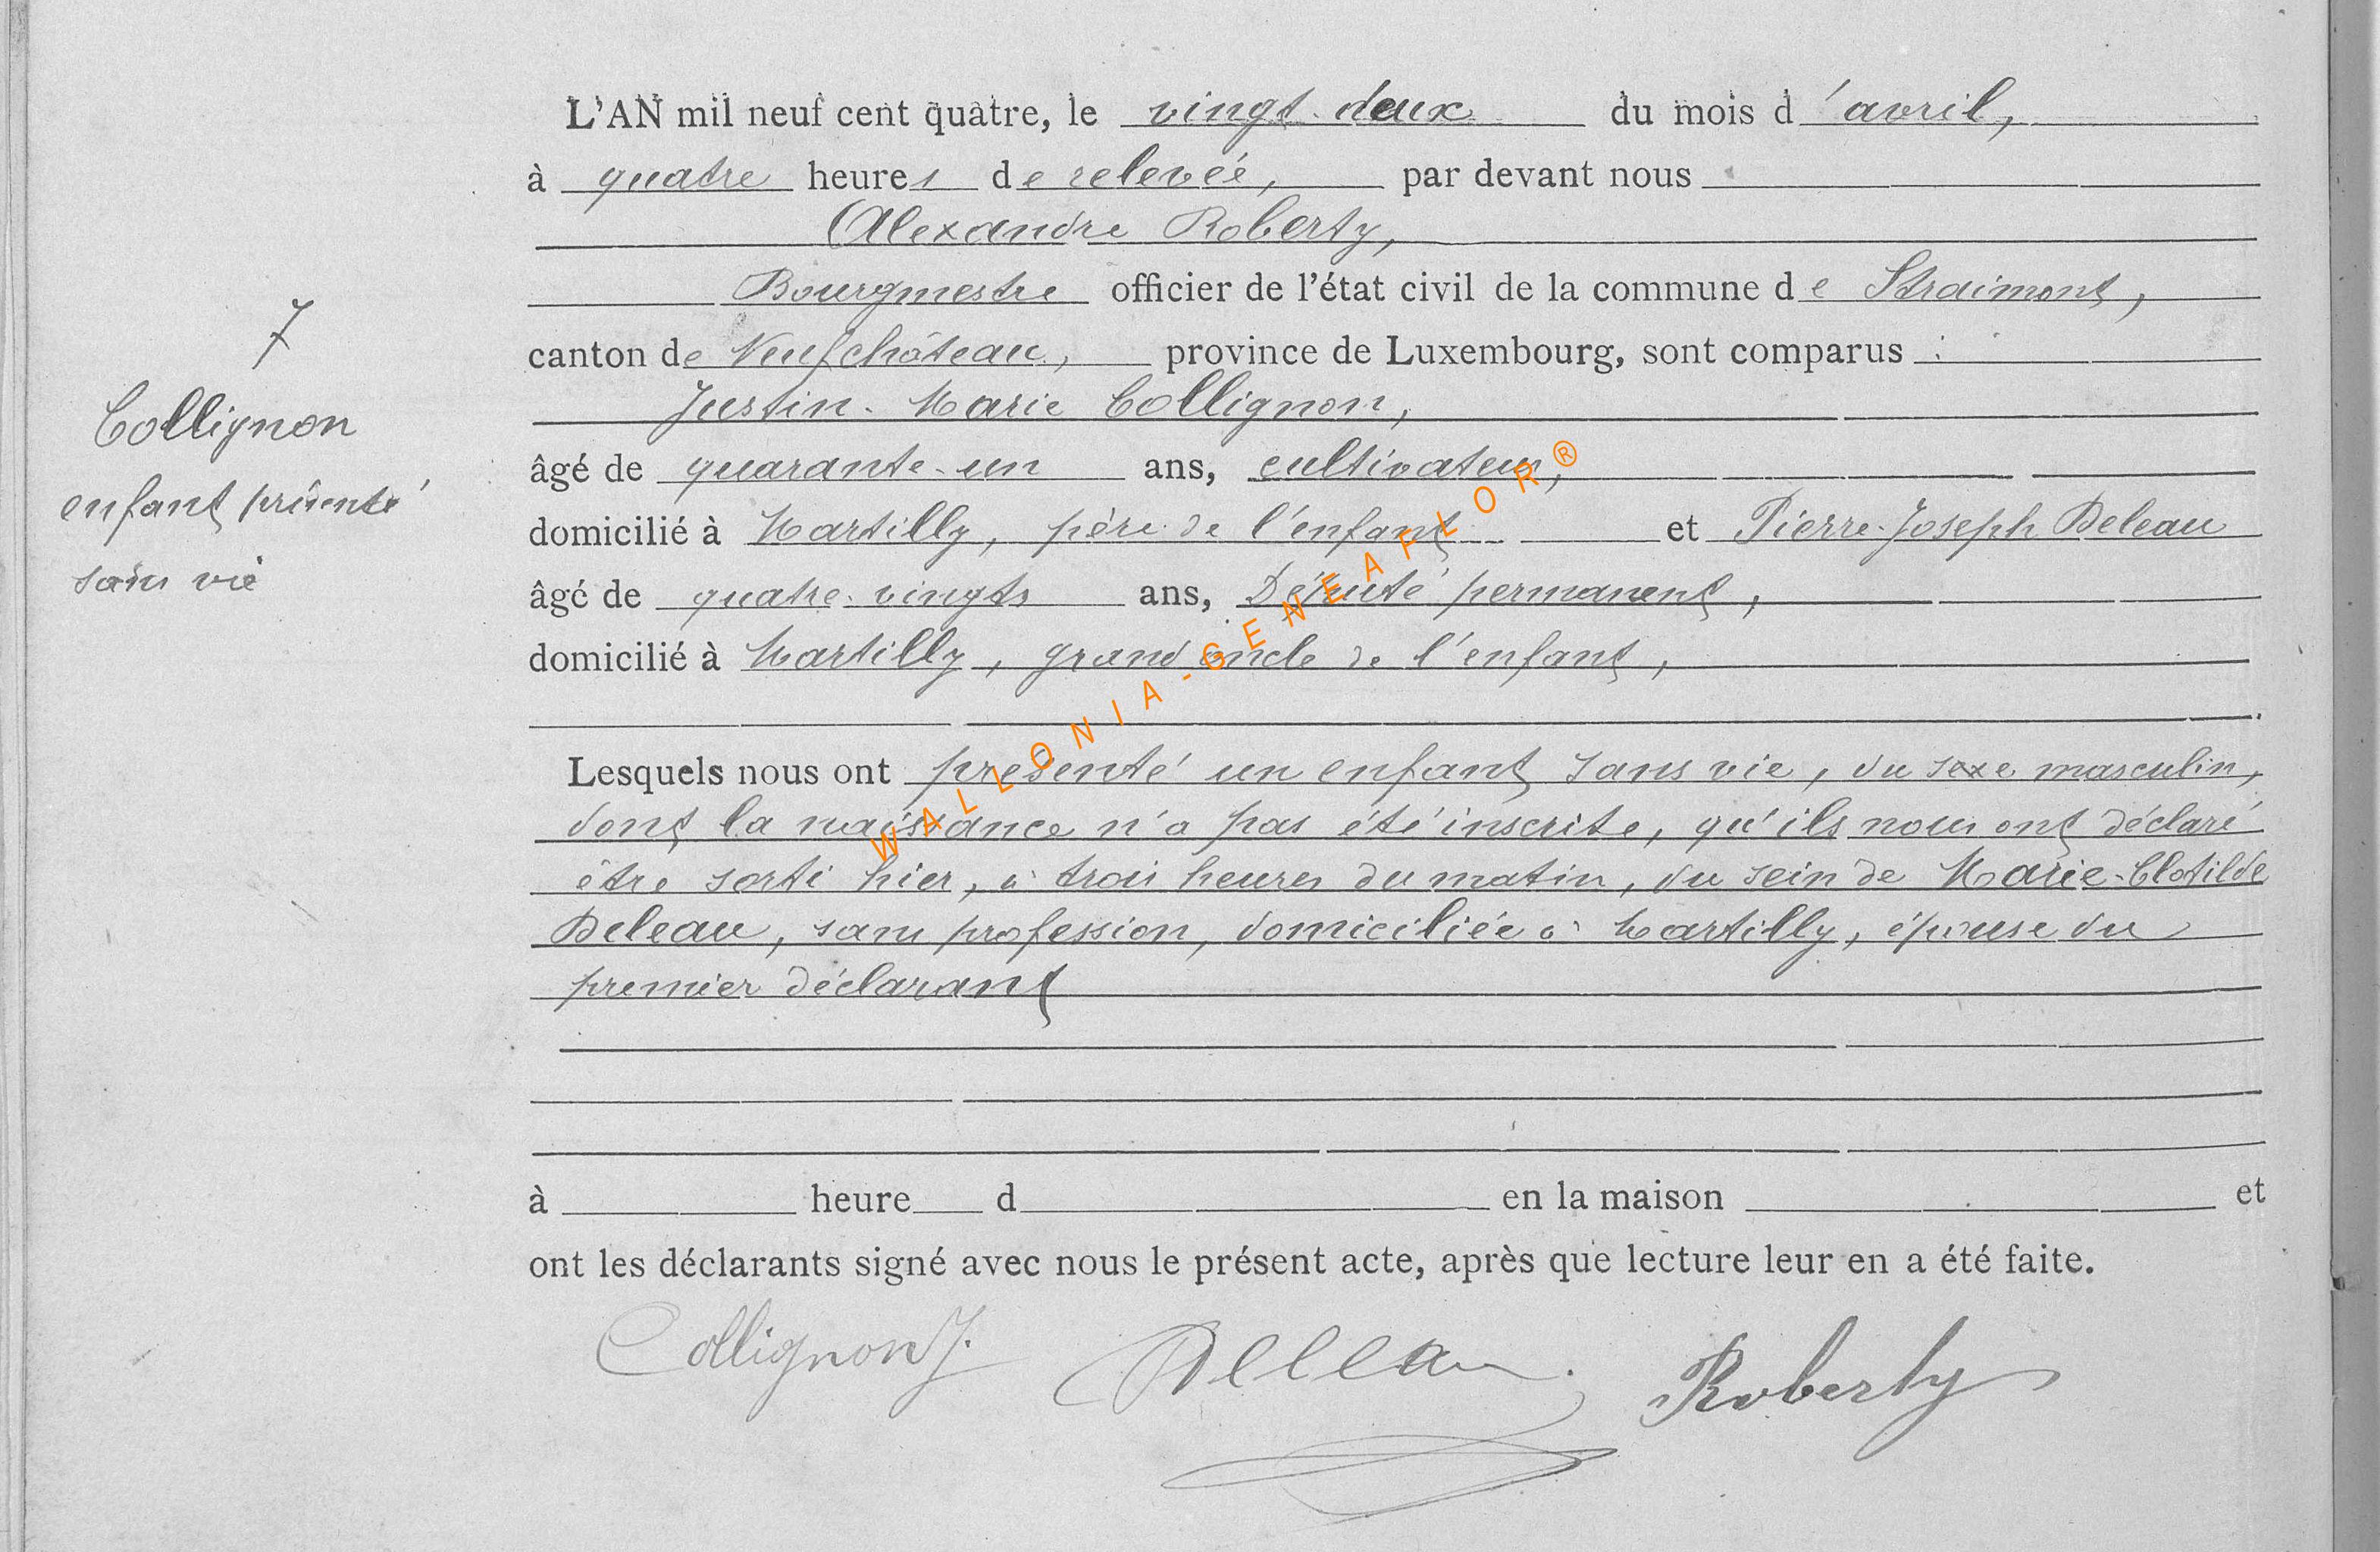 L'AN mil neuf cent quatre, le vingt-deux du mois d'avril,
à quatre heures de relevée, par devant nous
Alexandre Roberty,
Bourgmestre officier de l'état civil de la commune de Straimont,
canton de Neufchâteau, province de Luxembourg, sont comparus :
Justin-Marie Collignon,
âgé de quarante-un ans, cultivateur,
domicilié à Martilly, père de l'enfant et Pierre-Joseph Deleau
âgé de quatre-vingts ans, Député permanent,
domicilié à Martilly, grand oncle de l'enfant,
Lesquels nous ont présenté un enfant sans vie, du sexe masculin,
dont la naissance n'a pas été inscrite, qu'ils nous ont déclaré
être sorti hier, à trois heures du matin, du sein de Marie-Clotilde
Deleau, sans profession, domiciliée à Martilly, épouse du
premier déclarant
à heure d en la maison et
ont les déclarants signé avec nous le présent acte, après que lecture leur en a été faite.
Collignon J. Deleau Roberty
7
Collignon
enfant présenté
sans vie
WALLONIA-GENEAFLOR®